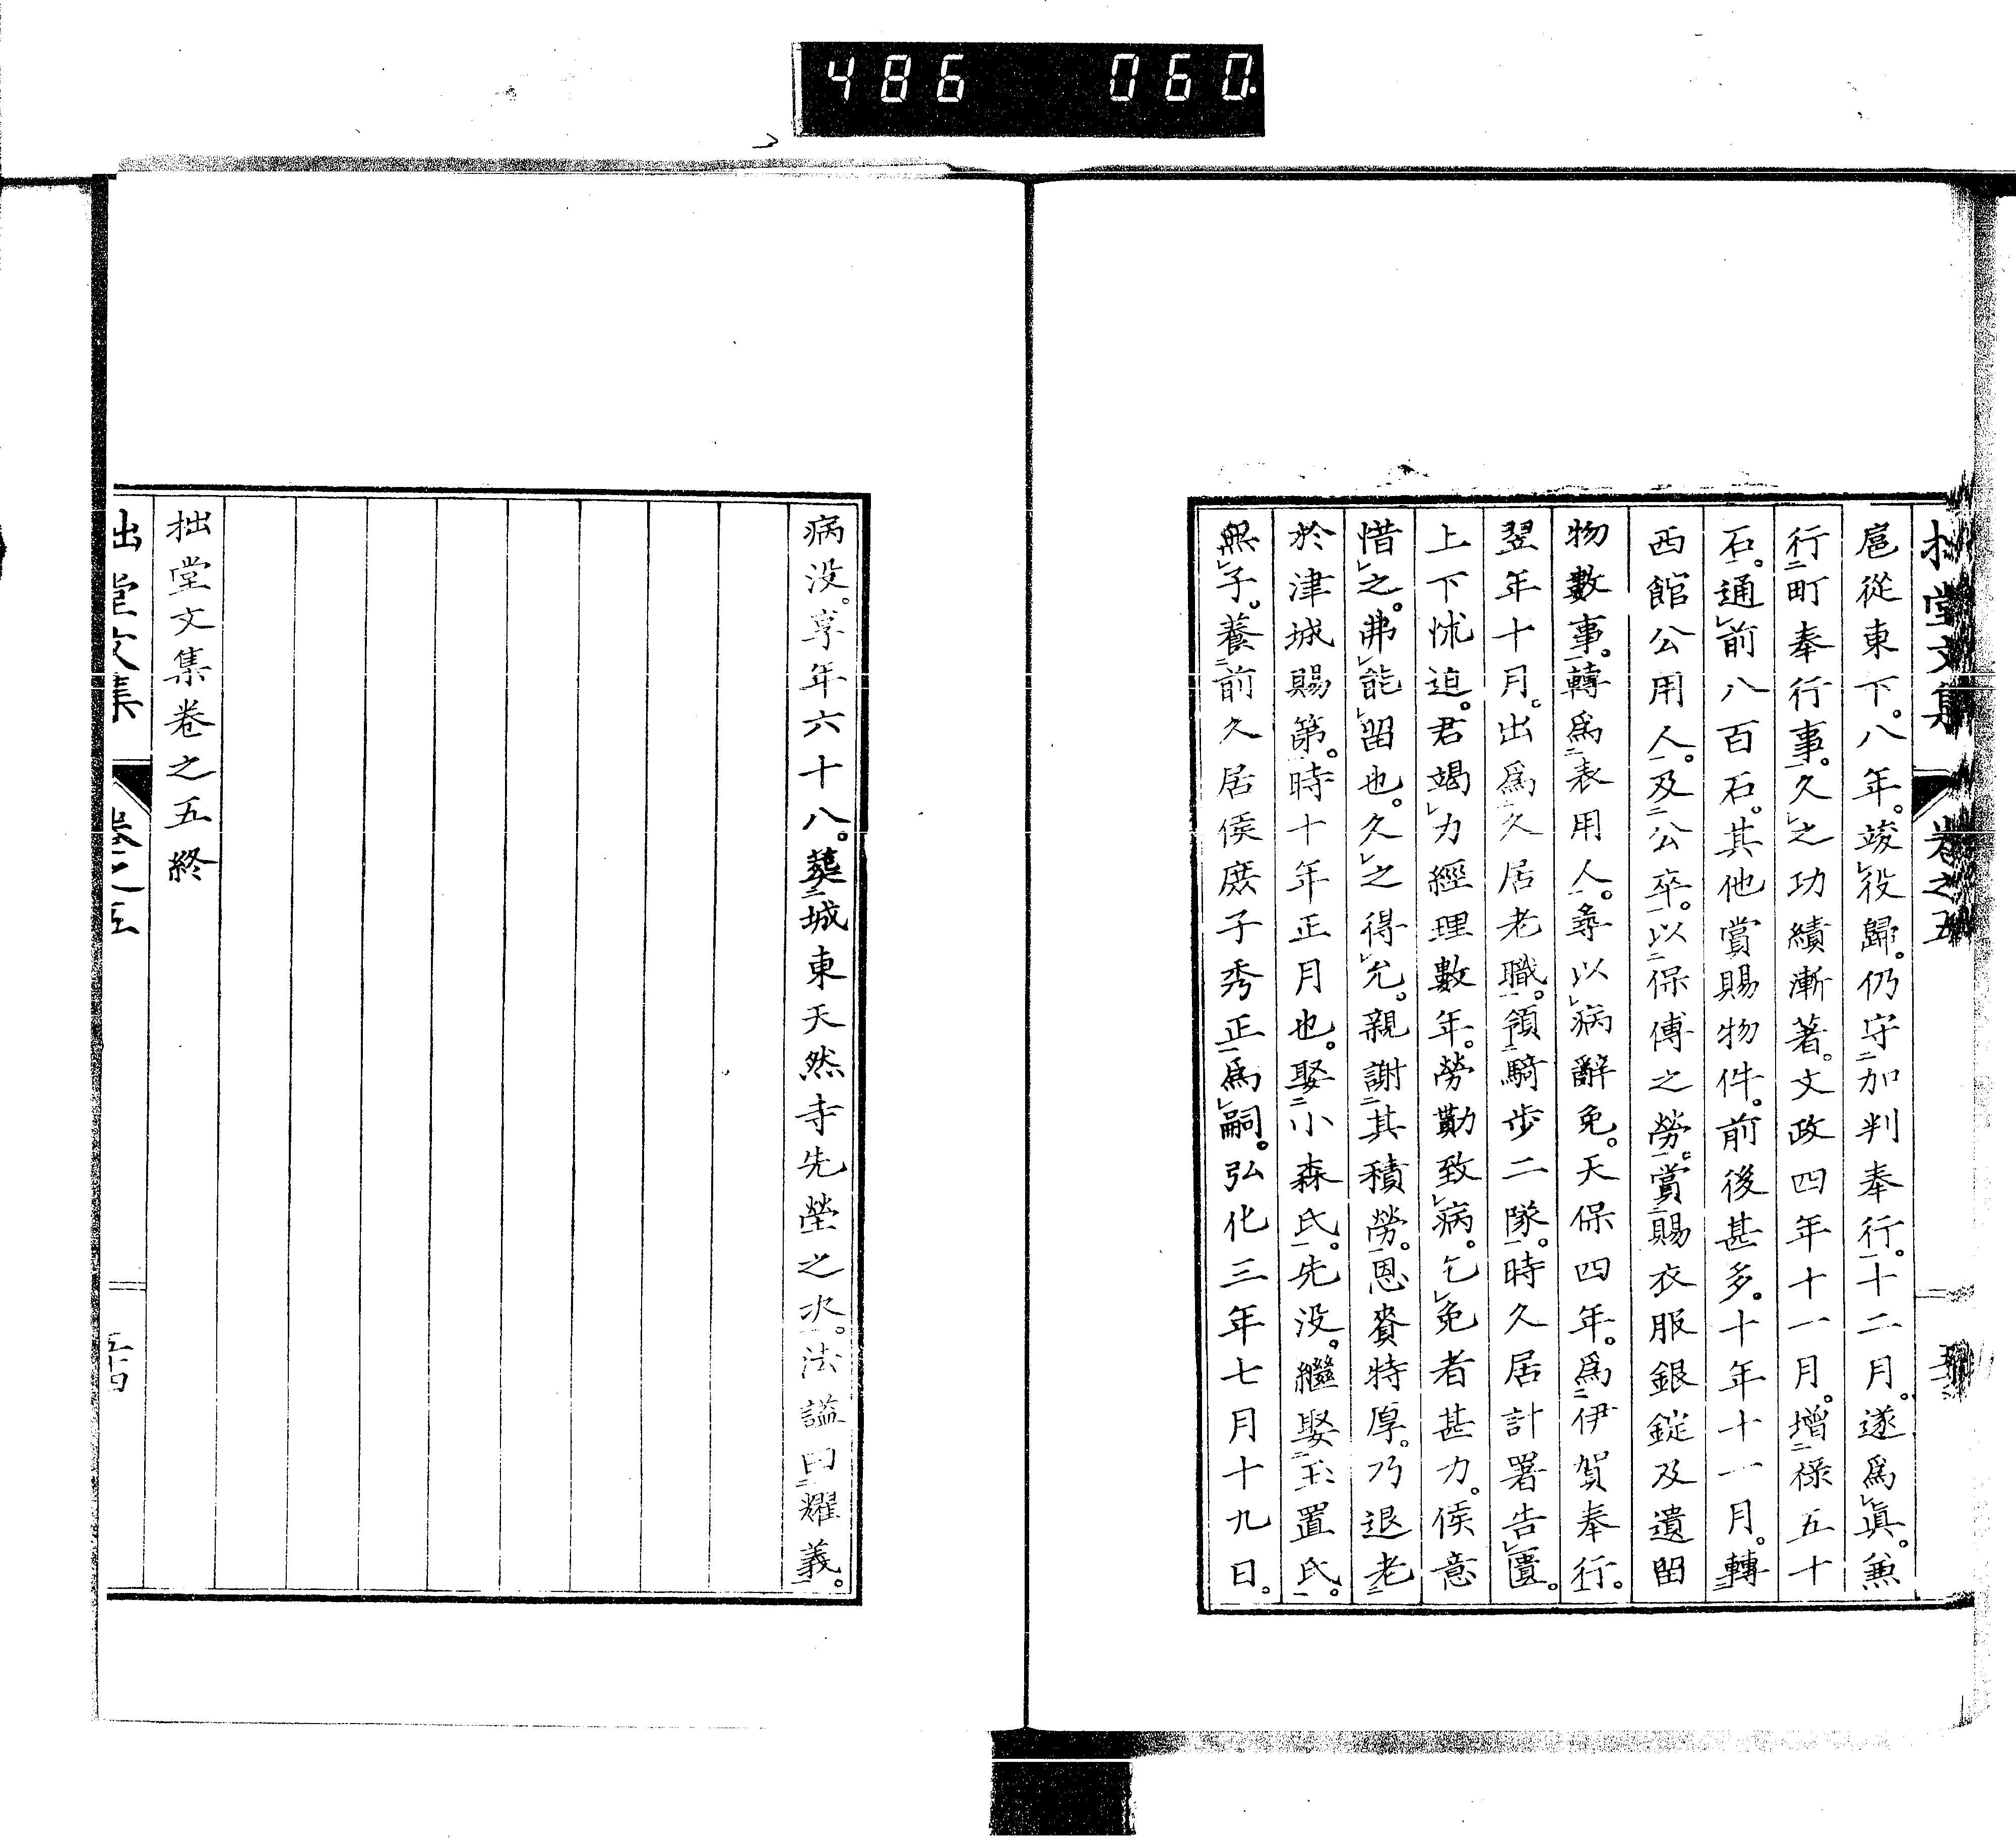 486 060
拙堂文集 卷之五
扈從東下。八年。竣役歸。仍守加判奉行。十二月。遂爲眞。兼
行町奉行事。久之功績漸著。文政四年十一月。增祿五十
石。通前八百石。其他賞賜物件。前後甚多。十年十一月。轉
西館公用人。及公卒。以保傅之勞。賞賜衣服銀錠及遺留
物數事。轉爲表用人。尋以病辭免。天保四年。爲伊賀奉行。
翌年十月。出爲久居老職。領騎步二隊。時久居計署告匱。
上下怵迫。君竭力經理數年。勞勩致病。乞免者甚力。侯意
惜之。弗能留也。久之得允。親謝其積勞。恩賚特厚。乃退老
於津城賜第。時十年正月也。娶小森氏。先没。繼娶玉置氏。
無子。養前久居侯庶子秀正爲嗣。弘化三年七月十九日。
病没。享年六十八。葬城東天然寺先塋之次。法謚曰耀義。
拙堂文集卷之五終
拙堂文集 卷之五 五十四